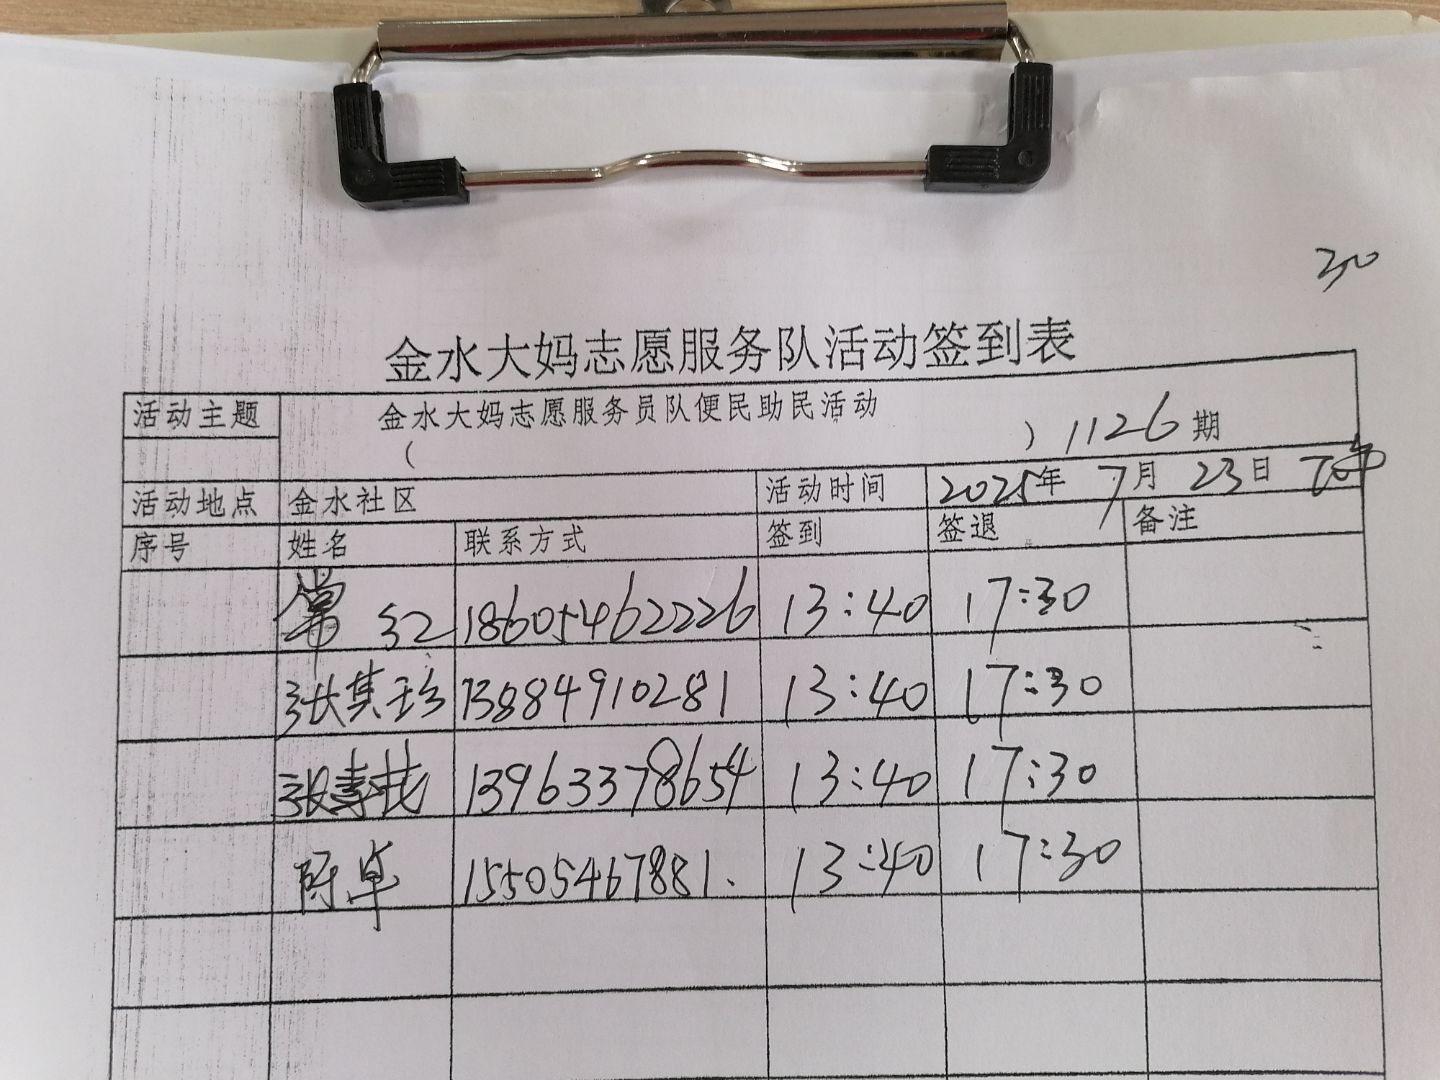 30
金水大妈志愿服务队活动签到表
活动主题 金水大妈志愿服务员队便民助民活动
( ) 1126期
活动地点 金水社区 活动时间 2025年 7月 23日 下午
序号 姓名 联系方式 签到 签退 备注
常红 18605462226 13:40 17:30
张其珍 13884910281 13:40 17:30
张 13963378654 13:40 17:30
陈卓 15505467881. 13:40 17:30